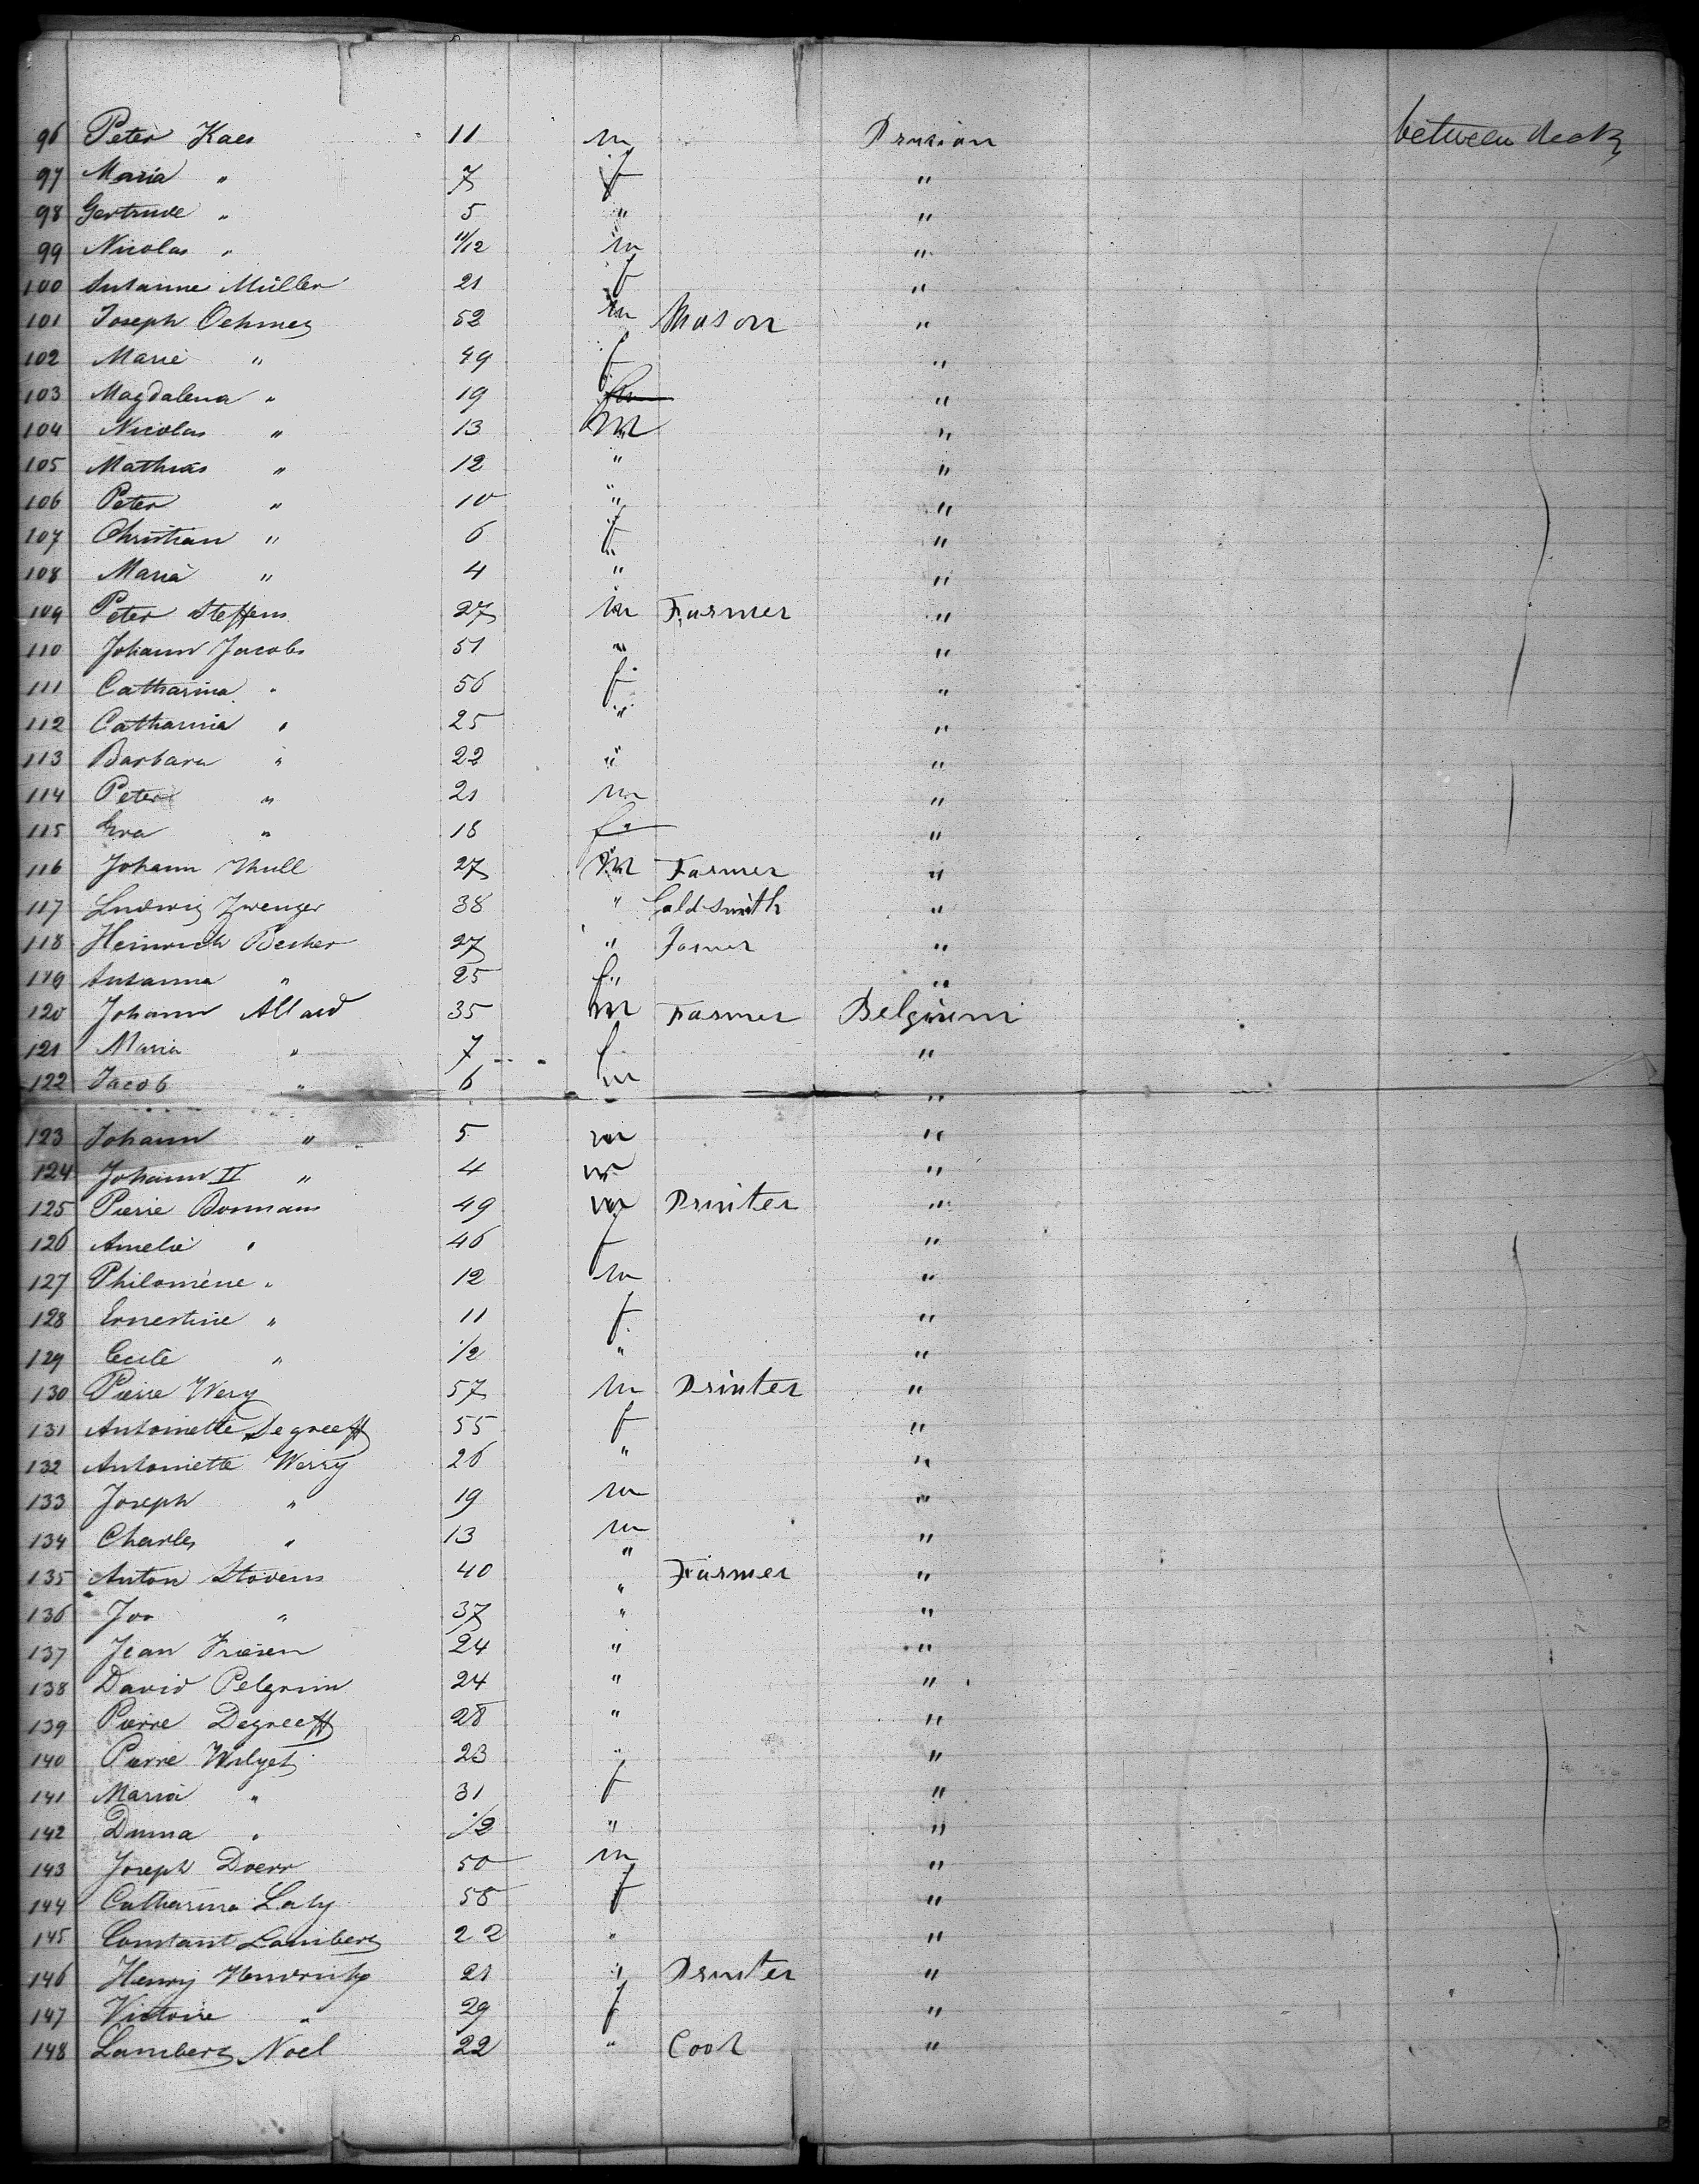 96 Peter Kaes 11 m Prusian between deck
97 Maria " 7 f "
98 Gertrude " 5 " "
99 Nicolas " 11/12 m "
100 Susanne Müller 21 f "
101 Joseph Oehmes 52 m Mason "
102 Marie " 49 f "
103 Magdalena " 19 "
104 Nicolas " 13 m "
105 Mathias " 12 " "
106 Peter " 10 " "
107 Christian " 6 f "
108 Maria " 4 " "
109 Peter Steffens 27 m Farmer "
110 Johann Jacobs 51 " "
111 Catharina " 56 f "
112 Catharina " 25 " "
113 Barbara " 22 " "
114 Peter " 21 m "
115 Eva " 18 f "
116 Johann Thull 27 m Farmer "
117 Ludwig Zwenger 38 " Goldsmith "
118 Heinrich Becker 27 " Famer "
119 Susanna " 25 f "
120 Johann Allard 35 m Farmer Belgium
121 Maria " 7 f "
122 Jacob " 6 m "
123 Johann " 5 m "
124 Johann II " 4 m "
125 Pierre Bonmans 49 m Printer "
126 Amelie " 46 f "
127 Philomène " 12 m "
128 Ernestine " 11 f "
129 Cecile " 1/2 " "
130 Pierre Wery 57 m Printer "
131 Antoinette Degreeff 55 f "
132 Antoinette Werry 26 " "
133 Joseph " 19 m "
134 Charles " 13 m "
135 Anton Stovens 40 " Farmer "
136 " 37 " "
137 Jean 24 " "
138 David Pelgrim 24 " "
139 Pierre Degreeff 28 " "
140 Pierre Wilget 23 " "
141 Maria " 31 f "
142 " 1/2 " "
143 Joseph Doerr 50 m "
144 Catharina Laly 58 f "
145 Constant Lambert 22 " "
146 Henry 21 " Printer "
147 Victoire " 29 f "
148 Lambert Noel 22 " Cook "